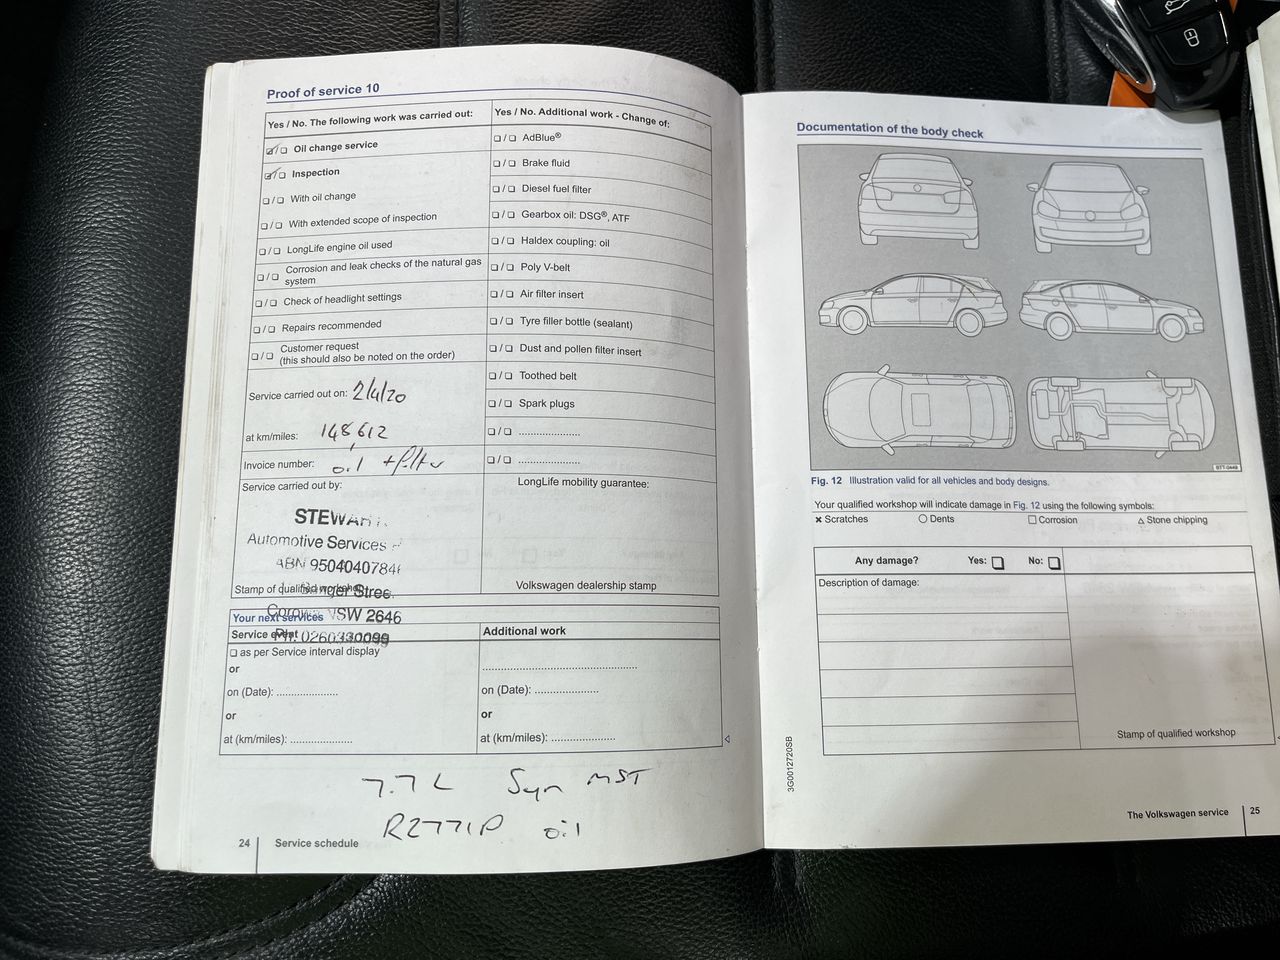 Proof of service 10
Yes / No. The following work was carried out:
☑/❏ Oil change service
☑/❏ Inspection
❏/❏ With oil change
❏/❏ With extended scope of inspection
❏/❏ LongLife engine oil used
❏/❏ Corrosion and leak checks of the natural gas
system
❏/❏ Check of headlight settings
❏/❏ Repairs recommended
❏/❏ Customer request
(this should also be noted on the order)
Service carried out on: 2/4/20
at km/miles: 148,612
Invoice number: oil + filter
Service carried out by:
STEWAR
Automotive Services
ABN 9504040784
Stamp of qualified workshop
Stree
NSW 2646
PH. 0260330099
Yes / No. Additional work - Change of:
❏/❏ AdBlue®
❏/❏ Brake fluid
❏/❏ Diesel fuel filter
❏/❏ Gearbox oil: DSG®, ATF
❏/❏ Haldex coupling: oil
❏/❏ Poly V-belt
❏/❏ Air filter insert
❏/❏ Tyre filler bottle (sealant)
❏/❏ Dust and pollen filter insert
❏/❏ Toothed belt
❏/❏ Spark plugs
❏/❏ .....................
❏/❏ .....................
LongLife mobility guarantee:
Volkswagen dealership stamp
Your next services
Service event
❏ as per Service interval display
or
on (Date): .....................
or
at (km/miles): .....................
Additional work
....................................................
on (Date): .....................
or
at (km/miles): .....................
7.7 L Syn MST
R2771P oil
24 Service schedule
Documentation of the body check
BTT-0449
Fig. 12 Illustration valid for all vehicles and body designs.
Your qualified workshop will indicate damage in Fig. 12 using the following symbols:
× Scratches ○ Dents □ Corrosion △ Stone chipping
Any damage? Yes: ❏ No: ❏
Description of damage:
Stamp of qualified workshop
3G0012720SB
The Volkswagen service 25